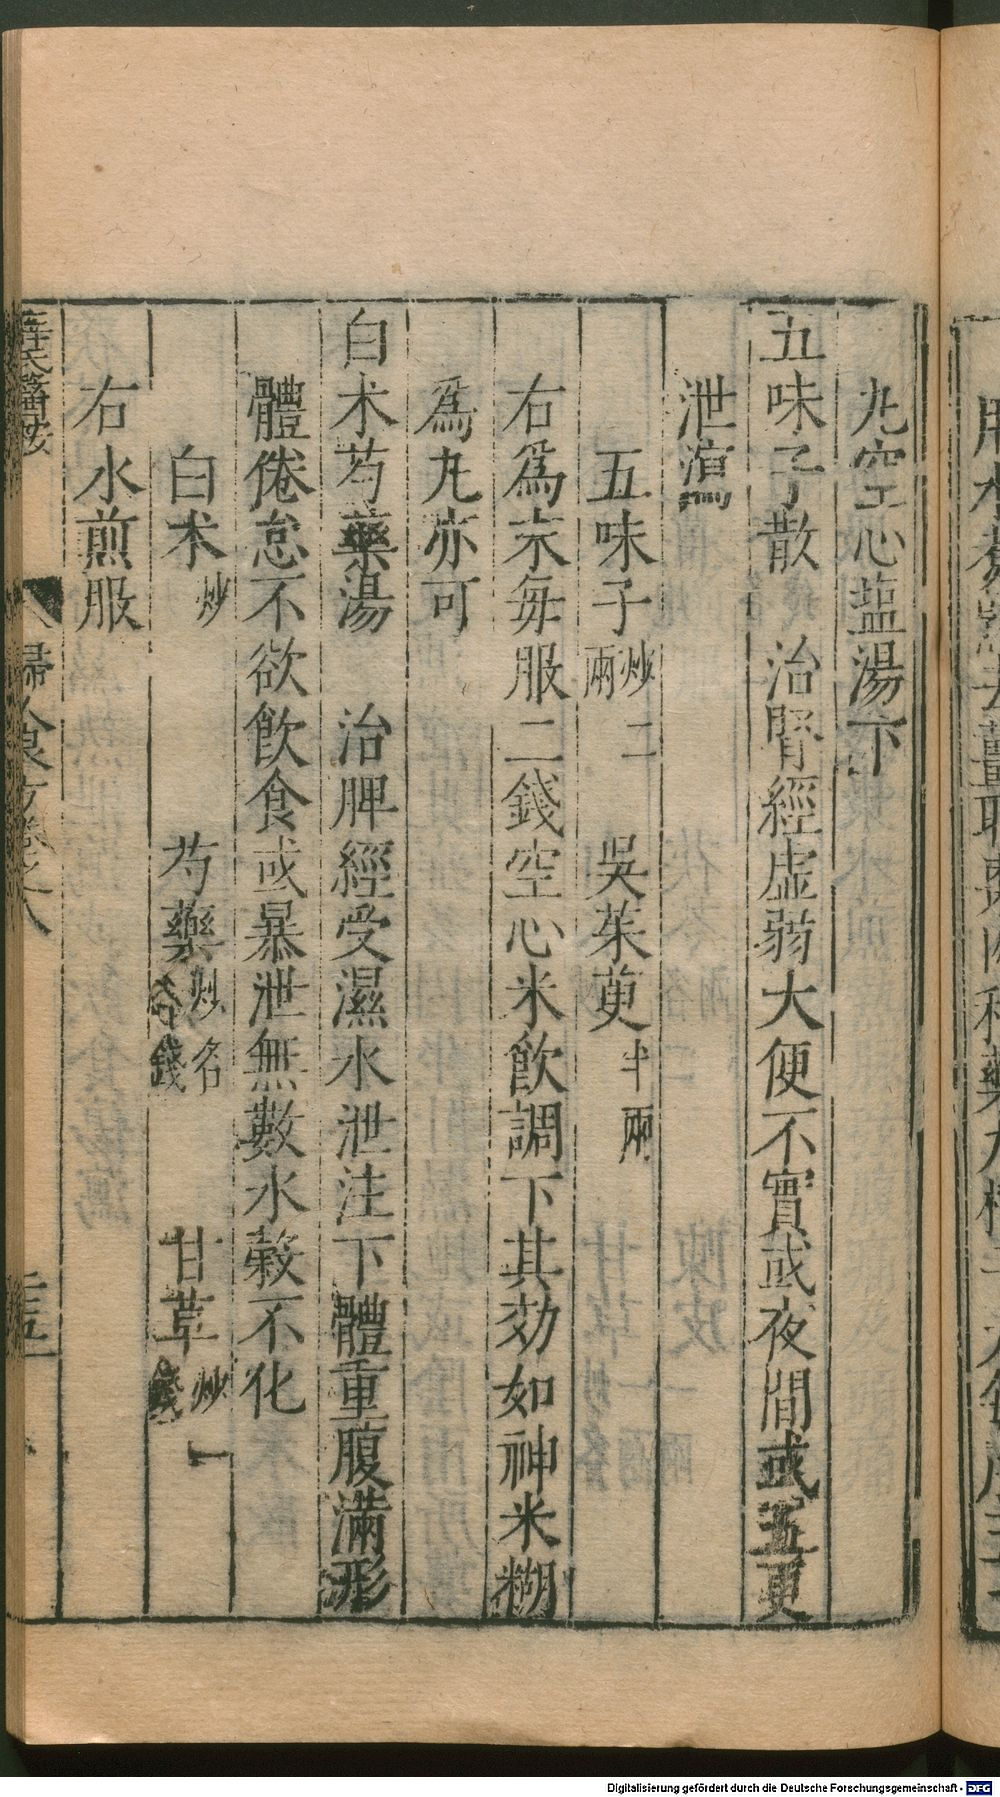 丸空心塩湯下
五味子散 治腎經虛弱大便不實或夜間或五更
泄瀉
五味子炒二兩 吳茱萸半兩
右爲末每服二錢空心米飲調下其効如神米糊
爲丸亦可
白术芍藥湯 治脾經受濕水泄注下體重腹滿形
體倦怠不欲飲食或暴泄無數水榖不化
白术炒 芍藥炒各 甘草炒一錢
右水煎服
婦人良方卷之八
Digitalisierung gefördert durch die Deutsche Forschungsgemeinschaft - DFG